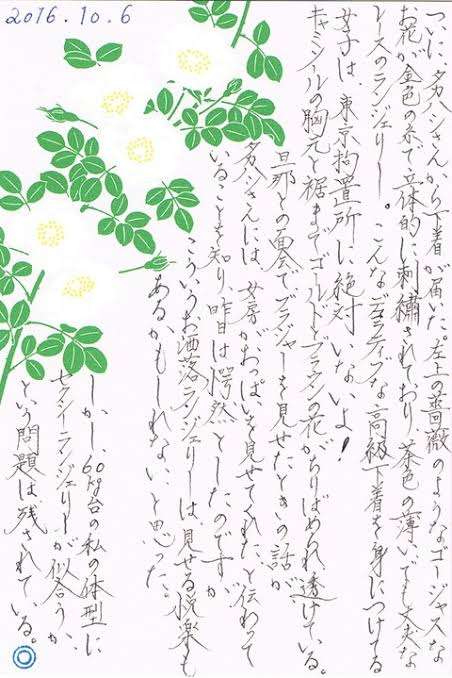 2016.10.6
ついに、夕カハシさんから下着が届いた。左上の薔薇のようなゴージャスな
お花が金色の糸で立体的に刺繍されており、茶色の薄いでも丈夫な
レースのランジェリー。こんなデコラティブな高級下着を身につけてる
女子は、東京拘置所に絶対いないよ!
キャミソールの胸元と裾までゴールドとブラウンの花がちりばめられ透けている。
旦那との面会でブラジャーを見せたときの話が、
夕カハシさんには、女房がおっぱいを見せてくれた、と伝わって
いることを知り昨日は愕然としたのですが、
こういうお洒落ランジェリーは、見せる悦楽も
あるかもしれない、と思った。
しかし、60kg台の私の体型に
セクシーランジェリーが似合うか、
という問題は、残されている。